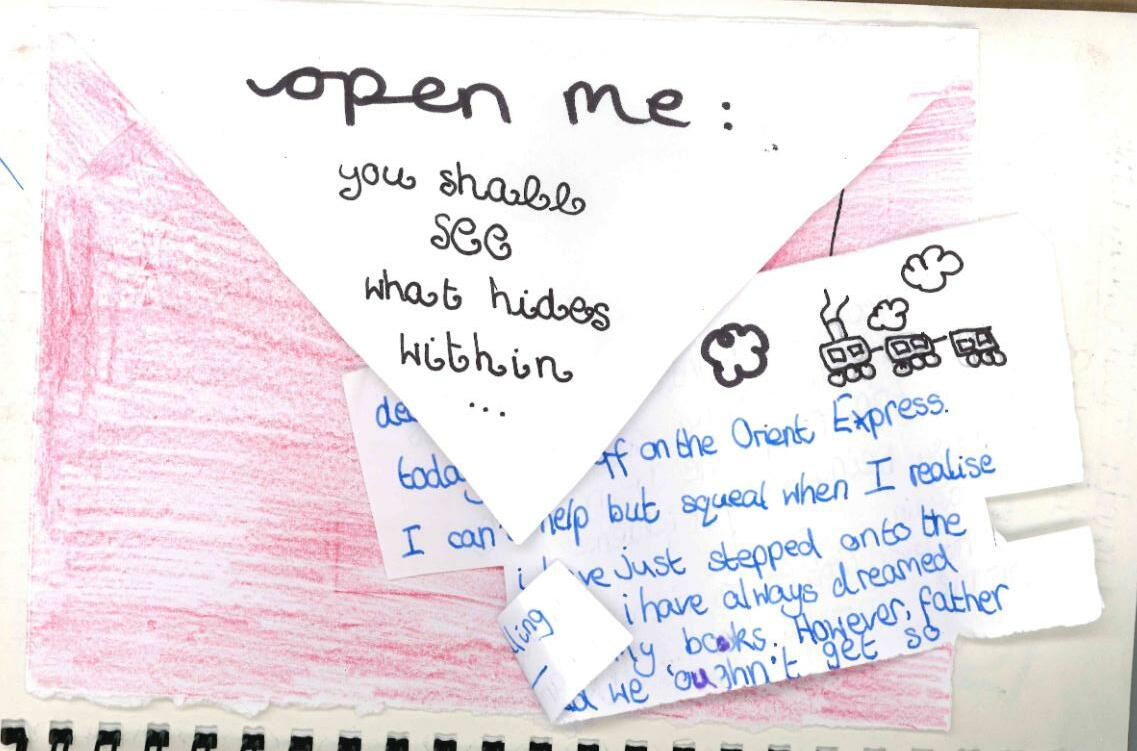 open me:
you shall
see
what hides
within
...
on the Orient Express.
I can't help but squeal when I realise
just stepped onto the
i have always dreamed
my books. However, father
we 'oughn't get so